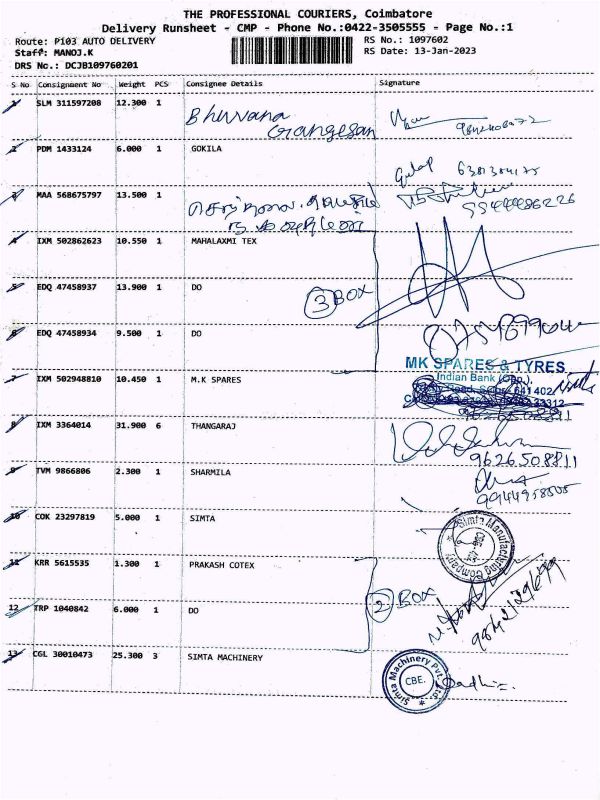 THE PROFESSIONAL COURIERS, Coimbatore
Delivery Runsheet - CMP - Phone No.:0422-3505555 - Page No.:1
Route: P103 AUTO DELIVERY RS No.: 1097602
Staff: MANOJ.K RS Date: 13-Jan-2023
DRS No.: DCJB109760201
S No Consignment No Weight PCS Consignee Details Signature
1 SLM 311597208 12.300 1 Bhuvana
Giangesan
2 PDM 1433124 6.000 1 GOKILA
3 MAA 568675797 13.500 1
4 IXM 502862623 10.550 1 MAHALAXMI TEX
5 EDQ 47458937 13.900 1 DO
3 BOX
6 EDQ 47458934 9.500 1 DO
MK SPARES & TYRES
Indian Bank (Opp.),
641 402
7 IXM 502948810 10.450 1 M.K SPARES
9626508811
8 IXM 3364014 31.900 6 THANGARAJ
9626508811
9 TVM 9866806 2.300 1 SHARMILA
10 COK 23297819 5.000 1 SIMTA
Simta Manufacturing Company
11 KRR 5615535 1.300 1 PRAKASH COTEX
2 BOX
12 TRP 1040842 6.000 1 DO
13 CGL 30010473 25.300 3 SIMTA MACHINERY
Simta Machinery Pvt. Ltd.
CBE.